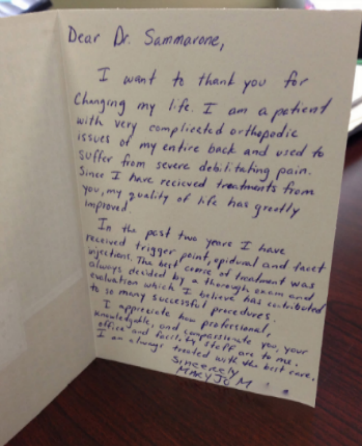 Dear Dr. Sammarone,
I want to thank you for
Changing my life. I am a patient
with very complicated orthopedic
issues of my entire back and used to
suffer from severe debilitating pain.
Since I have recieved treatments from
you, my quality of life has greatly
improved.
In the past two years I have
received trigger point, epidural and facet
injections. The best course of treatment was
always decided by a thorough exam and
evaluation which I believe has contributed
to so many successful procedures.
I appreciate how professional,
knowledgable, and compassionate you, your
office and facility staff are to me.
I am always treated with the best care.
Sincerely
Mary Jo M